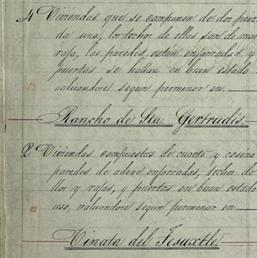 4 Viviendas que se componen de dos piez
da una, los techos de ellas son de mor
rafa, las paredes estan enforradas y
puertas se hallan en buen estado
valuandose segun pormenor en
Rancho de Sta Gertrudis
2 Viviendas compuestas de cuarto y cosina
paredes de adove enforradas, techos de
llor y rafas, y puertas en buen estado
uso, valuandose segun pormenor en
Vinata del Tesuxtle